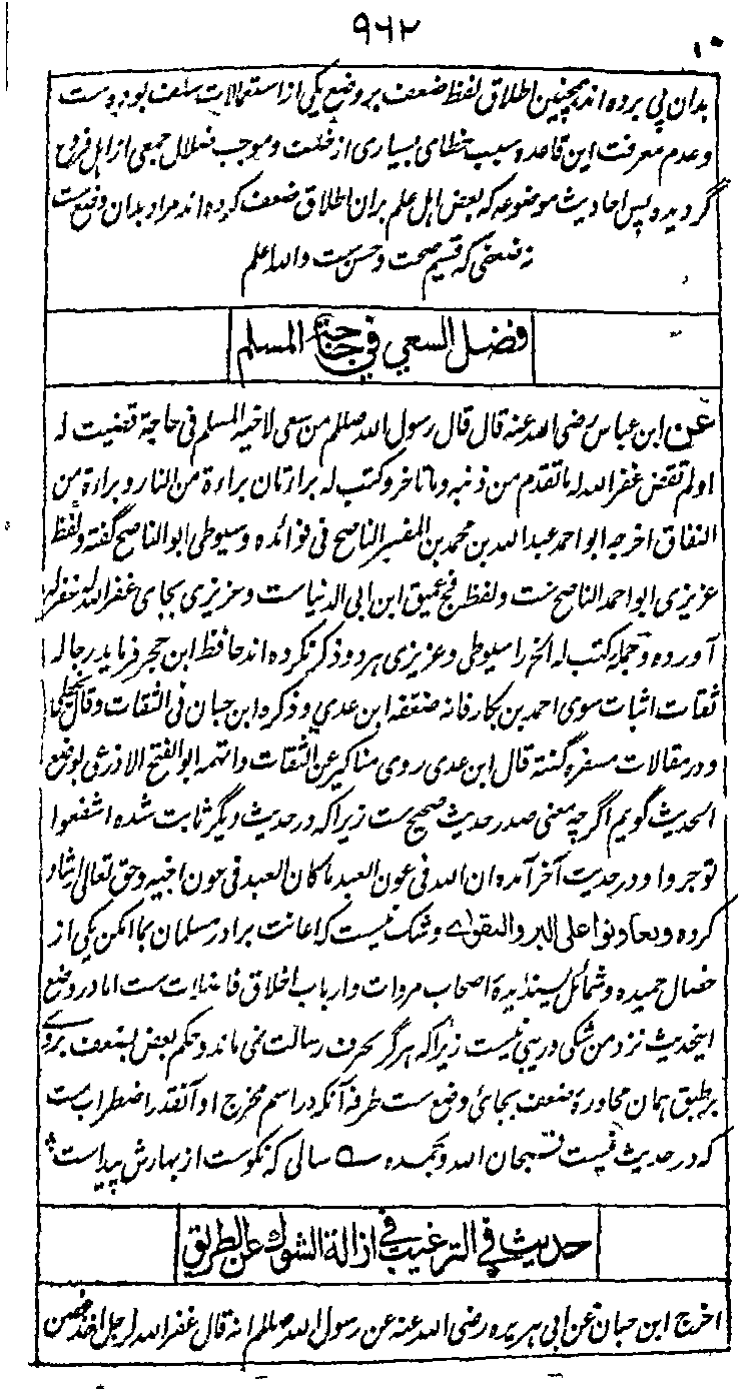 ۹۶۲
۱۰
بدان پی برده اند همچنین اطلاق لفظ ضعف بر وضع یکی از استعمالات سلف بوده ست
و عدم معرفت این قاعده سبب خطای بسیاری از خلف و موجب ضلال جمعی از اهل فروع
گردیده پس احادیث موضوعه که بعض اهل علم بران اطلاق ضعف کرده اند مراد بدان وضع ست
نه ضعفی که قسیم صحت و حسن ست و الله اعلم
فضل السعي في حاجة المسلم
عن ابن عباس رضی الله عنه قال قال رسول الله صللم من سعی لاخیه المسلم فی حاجة قضیت له
اولم تقض غفر الله له ما تقدم من ذنبه وما تاخر وکتب له براءتان براءة من النار و براءة من
النفاق اخرجه ابو احمد عبد الله بن محمد بن المفسر الناصح فی فوائده و سیوطی ابو الناصح گفته و لفظ
عزیزی ابو احمد الناصح ست و لفظ فج عمیق ابن ابی الدنیاست و عزیزی بجای غفر الله له غفر له
آورده و جمله کتب له الخ را سیوطی و عزیزی هر دو ذکر نکرده اند حافظ ابن حجر فرماید رجاله
ثقات اثبات سوی احمد بن بکار فانه ضعفه ابن عدی و ذکره ابن حبان فی الثقات و قال یخطی
و در مقالات مسفره گفته قال ابن عدی روی مناکیر عن الثقات و اتهمه ابو الفتح الازدی بوضع
الحدیث گویم اگرچه معنی صدر حدیث صحیح ست زیرا که در حدیث دیگر ثابت شده اشفعوا
توجروا و در حدیث آخر آمده ان الله فی عون العبد ما کان العبد فی عون اخیه و حق تعالی ارشاد
کرده وتعاونوا علی البر والتقوی و شک نیست که اعانت برادر مسلمان بما امکن یکی از
خصال حمیده و شمائل پسندیدۀ اصحاب مروات و ارباب اخلاق فاضلات ست اما در وضع
اینحدیث نزد من شکی و ریبی نیست زیرا که هرگز بحرف رسالت نمی ماند و حکم بعض بضعف بروے
بر طبق همان محاورۀ ضعف بجائ وضع ست طرفه آنکه در اسم مخرج او آنقدر اضطراب ست
که در حدیث نیست فسبحان الله وبحمده سالی که نکوست از بهارش پیداست
حديث في الترغيب في ازالة الشوك عن الطريق
اخرج ابن حبان عن ابی هریره رضی الله عنه عن رسول الله صللم انه قال غفر الله لرجل اخذ غصن